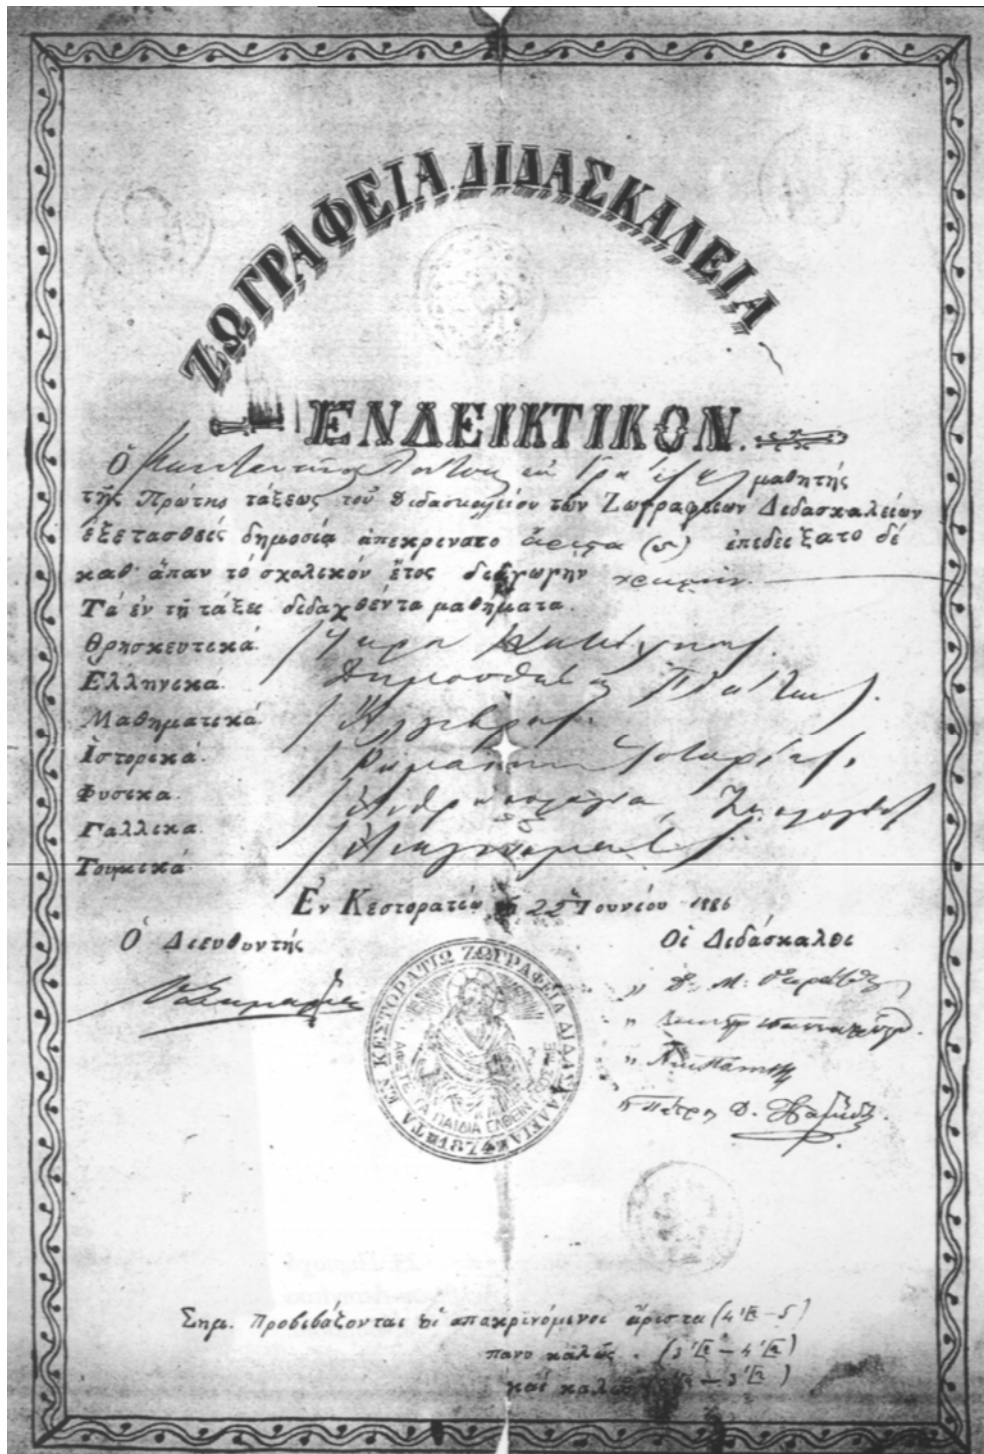 ΖΩΓΡΑΦΕΙΑ ΔΙΔΑΣΚΑΛΕΙΑ
ΕΝΔΕΙΚΤΙΚΟΝ.
Ὁ μαθητής
τῆς Πρώτης τάξεως τοῦ Διδασκαλείου τῶν Ζωγραφείων Διδασκαλείων
ἐξετασθείς δημοσίᾳ ἀπεκρίνατο ἄριστα (5) ἐπεδείξατο δέ
καθ' ἅπαν τό σχολικόν ἔτος διαγωγήν κοσμίαν.
Τά ἐν τῇ τάξει διδαχθέντα μαθήματα.
Θρησκευτικά. Ἱερά Κατήχησις.
Ἑλληνικά. Δημοσθένης Πλάτων.
Μαθηματικά Ἄλγεβρα.
Ἱστορικά. Ῥωμαϊκή Ἱστορία.
Φυσικα. Ἀνθρωπολογία, Ζωολογία
Γαλλικα.
Τουρκικά
Ἐν Κεστορατίῳ τῇ 22 Ἰουνίου 1886
Ὁ Διευθυντής
Οἱ Διδάσκαλοι
ΤΑ ΕΝ ΚΕΣΤΟΡΑΤΙΩ ΖΩΓΡΑΦΕΙΑ ΔΙΔΑΣΚΑΛΕΙΑ
ΑΦΕΤΕ ΤΑ ΠΑΙΔΙΑ ΕΛΘΕΙΝ
Σημ. Προβιβάζονται οἱ ἀποκρινόμενοι ἄριστα (4 1/2 – 5)
πανυ καλῶς . (3 1/2 – 4 1/2)
καί καλῶς – 3 1/2)